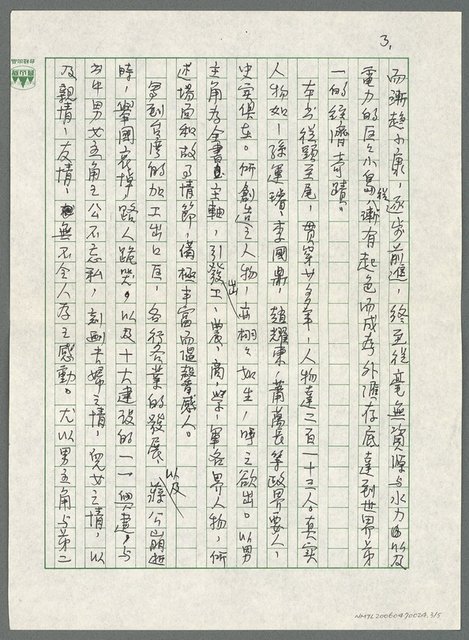 3.
而漸趨小康，逐步前進，終至從毫無資源與水力以及
電力的區區小島漸有起色而成為外匯存底達到世界第
一的經濟奇蹟。
本書從頭至尾，貫穿廿多年，人物達二百一十三人。真實
人物如：孫運璿，李國鼎，趙耀東，蕭萬長等政界要人，
史實俱在。所創造之人物，亦栩栩如生，呼之欲出。以男
主角為全書主軸，引發出工、農、商、學、軍各界人物，所
述場面和故事情節，備極豐富而溫馨感人。
寫到台灣的加工出口區，各行各業的發展、以及蔣公崩逝
時，舉國哀悼，路人跪哭。以及十大建設的一一個，與
書中男女主角之公不忘私，刻画夫婦之情，兒女之情，以
及親情，友情，無不令人存之感動。尤以男主角與第二
NMTL20060470024.3/5